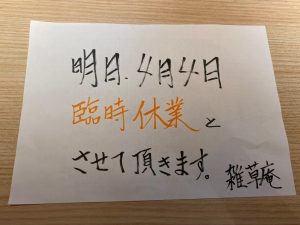 明日、4月4日
臨時休業と
させて頂きます。
雑草庵